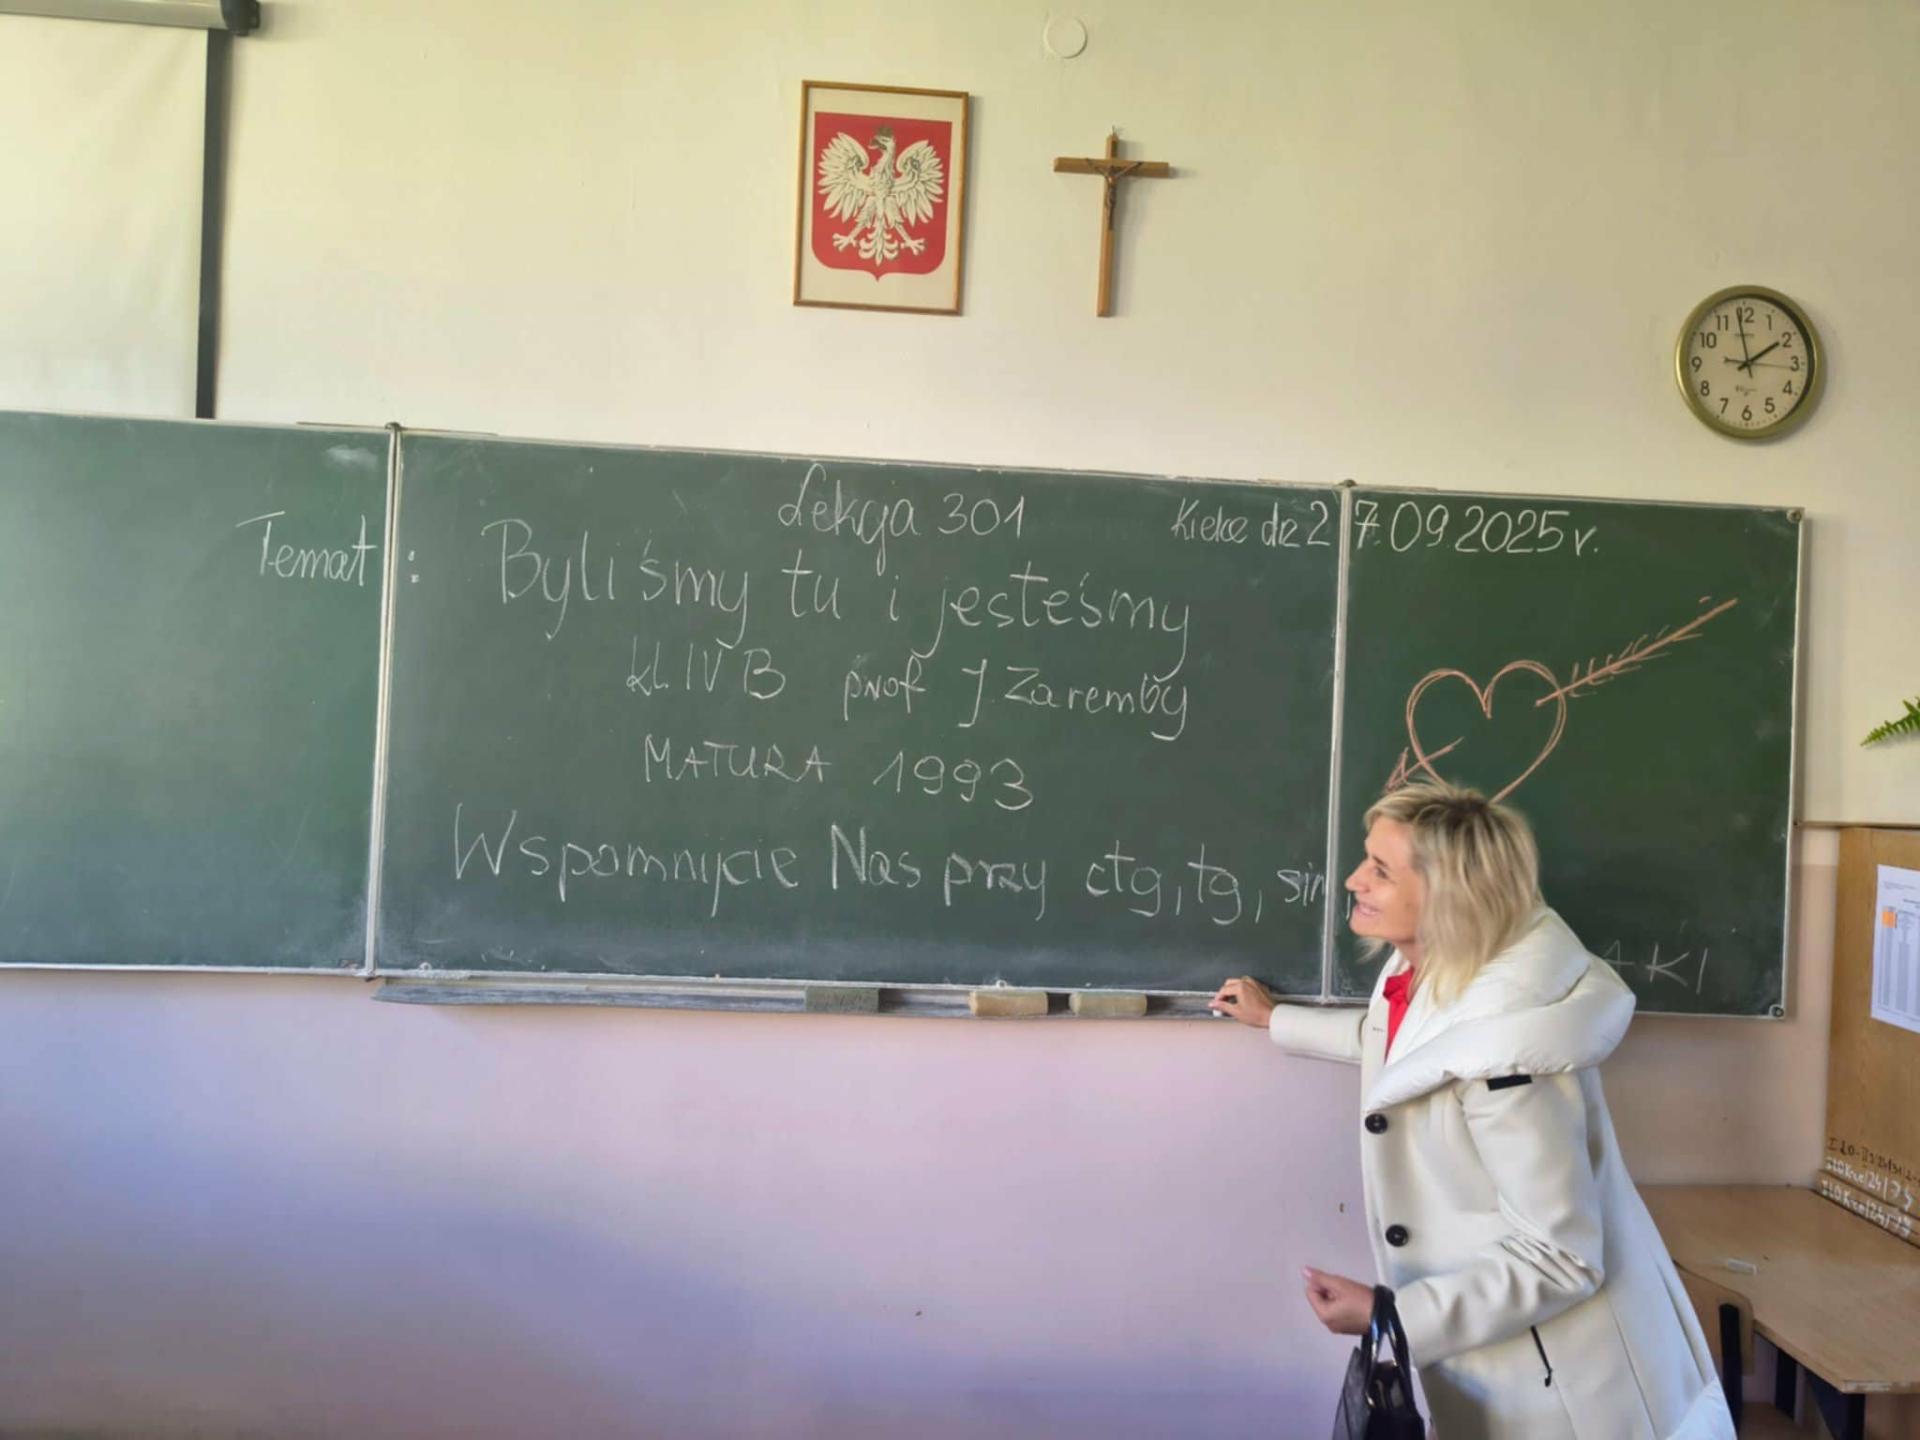 Lekcja 301
Kielce dn 27.09.2025 r.
Temat: Byliśmy tu i jesteśmy
kl. IV B prof J. Zaremby
MATURA 1993
Wspomnijcie Nas przy ctg, tg, sin
AKI
11 12 1
10 2
9 3
8 4
7 6 5